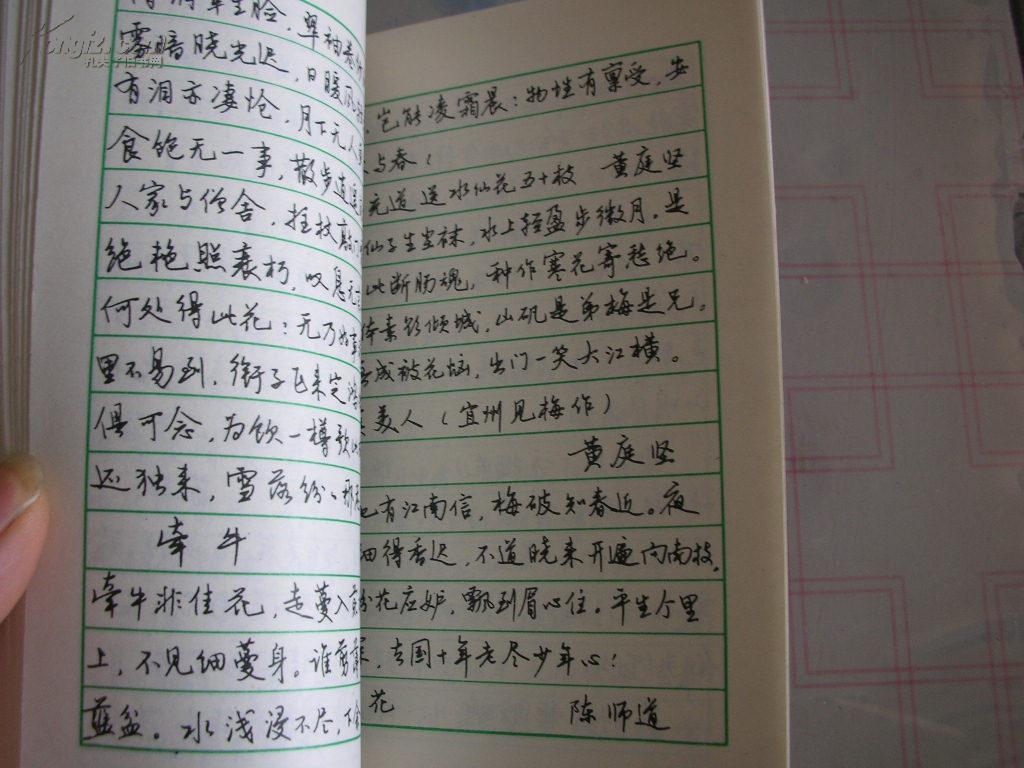 雾暗晓光迟，日暖风
有泪亦凄怆，月下无人
食饱无一事，散步逍遥
人家与僧舍，拄杖敲
绝艳照衰朽，叹息无
何处得此花：无乃好事
里不易到，衔子飞来定
俱可念，为饮一樽歌此
还独来，雪落纷纷那
牵牛
牵牛非佳花，走蔓入
上，不见细蔓身。谁剪
蓝盆。水浅浸不尽，
岂能凌霜晨：物性有禀受，安
与春！
充道送水仙花五十枝 黄庭坚
仙子生尘袜，水上轻盈步微月，是
此断肠魂，种作寒花寄愁绝。
体素欲倾城，山矾是弟梅是兄。
成被花恼，出门一笑大江横。
美人（宜州见梅作）
黄庭坚
有江南信，梅破知春近。夜
细得香迟，不道晓来开遍向南枝。
花应妒，飘到眉心住。平生个里
，去国十年老尽少年心！
花 陈师道
孔夫子旧书网